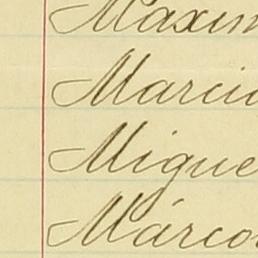 Maxim
Marcia
Migue
Márcos